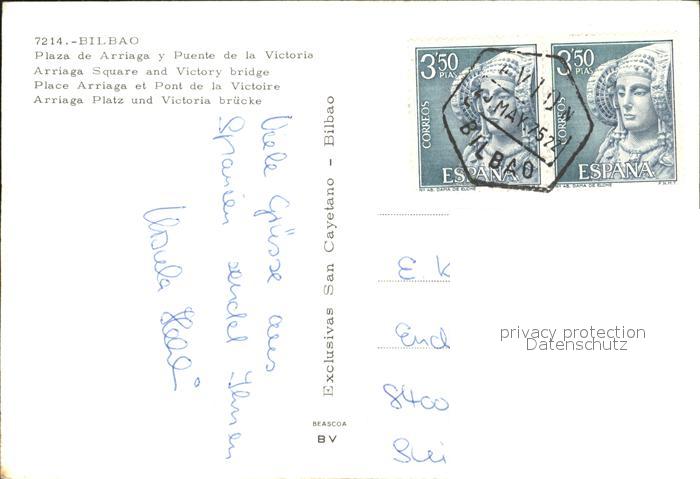 7214.-BILBAO
Plaza de Arriaga y Puente de la Victoria
Arriaga Square and Victory bridge
Place Arriaga et Pont de la Victoire
Arriaga Platz und Victoria brücke
3'50 PTAS
CORREOS
ESPAÑA
Nº AB. DAMA DE ELCHE
3'50 PTAS
CORREOS
ESPAÑA
Nº AB. DAMA DE ELCHE
F.N.M.T.
MAY.
BILBAO
Viele Grüsse aus
Spanien sendet Ihnen
Ursula
Exclusivas San Cayetano - Bilbao
BEASCOA
BV
E. K
End
8400
privacy protection
Datenschutz